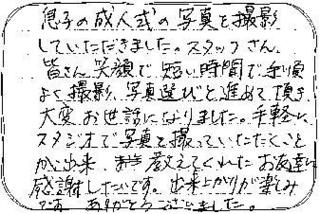 息子の成人式の写真を撮影
していただきました。スタッフさん
皆さん笑顔で短い時間で手順
よく撮影、写真選びと進めて頂き
大変お世話になりました。手軽に
スタジオで写真を撮っていただくこと
が出来、教えてくれたお友達に
感謝したいです。出来上がりが楽しみ
です。ありがとうございました。